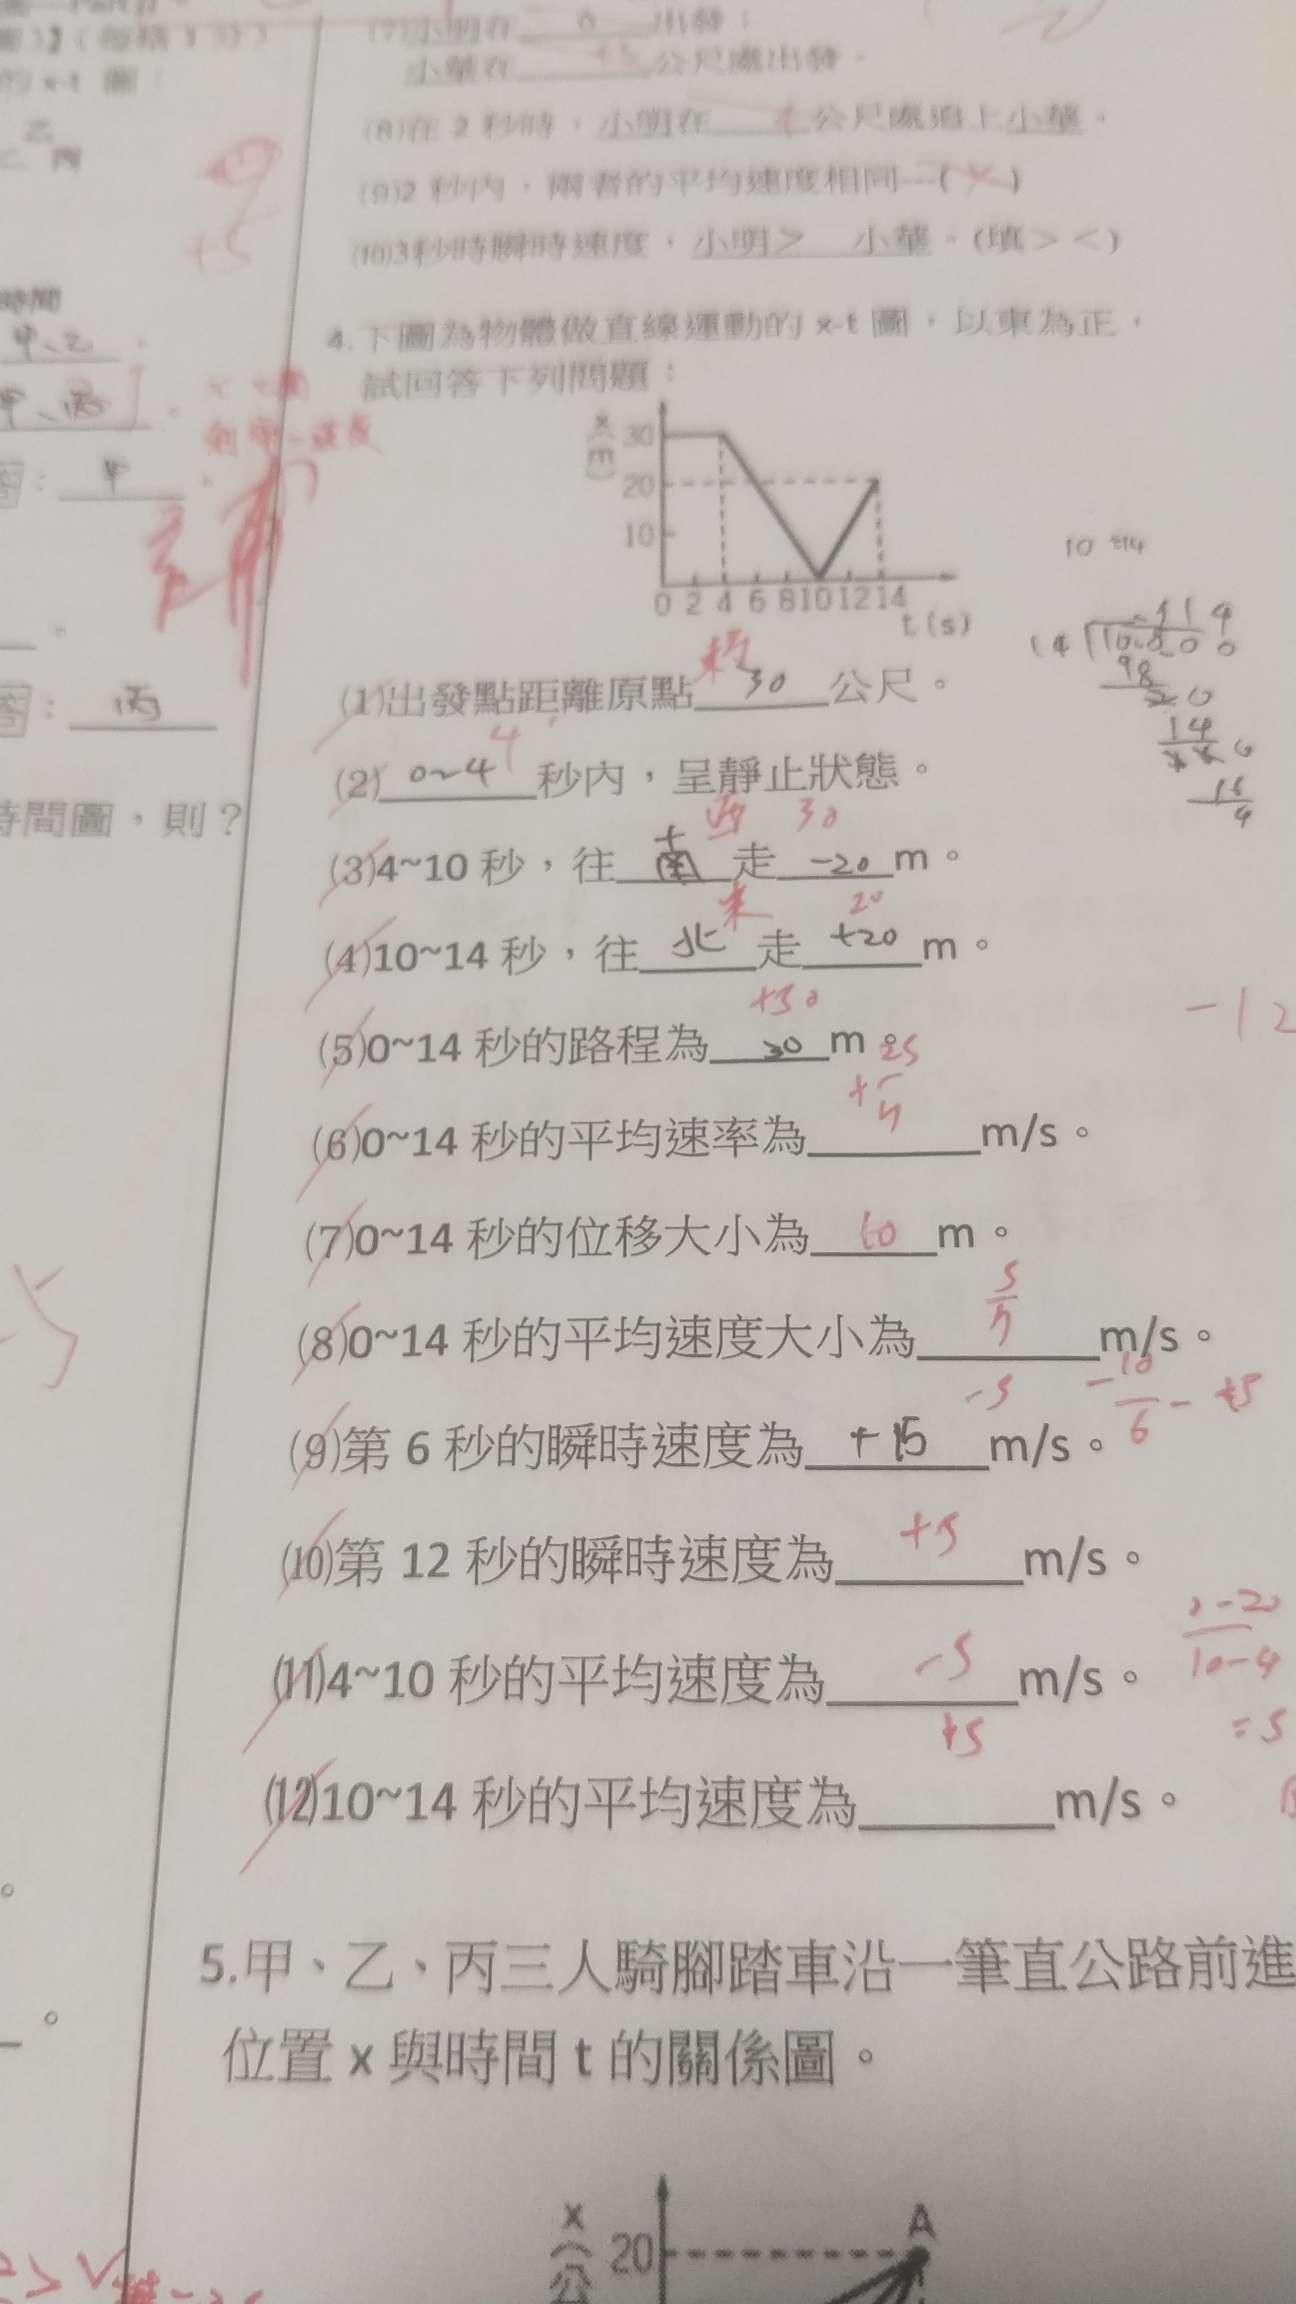 的 x-t 圖：
乙
丙
時間
甲、乙
甲、丙
甲
丙
時間圖，則？
(7)小明在 0 出發；
小華在 +5 公尺處出發。
(8)在 2 秒時，小明在 公尺處追上小華。
(9)2 秒內，兩者的平均速度相同---( )
(10)3秒時瞬時速度，小明> 小華。(填 > <)
4.下圖為物體做直線運動的 x-t 圖，以東為正，
試回答下列問題：
x(m)
30
20
10
0 2 4 6 8 10 12 14
t(s)
10 ÷14
(1)出發點距離原點 30 公尺。
4
(2) 0~4 秒內，呈靜止狀態。
西 30
(3)4~10 秒，往 南 走 -20 m。
東 20
(4)10~14 秒，往 北 走 +20 m。
+30
-12
(5)0~14 秒的路程為 30 m。
25
(6)0~14 秒的平均速率為 m/s。
(7)0~14 秒的位移大小為 10 m。
5
(8)0~14 秒的平均速度大小為 m/s。
-5
-10
6
(9)第 6 秒的瞬時速度為 +15 m/s。
+5
(10)第 12 秒的瞬時速度為 m/s。
(11)4~10 秒的平均速度為 -5 m/s。
10-4
=5
+5
(12)10~14 秒的平均速度為 m/s。
5.甲、乙、丙三人騎腳踏車沿一筆直公路前進
位置 x 與時間 t 的關係圖。
x(公
20
A